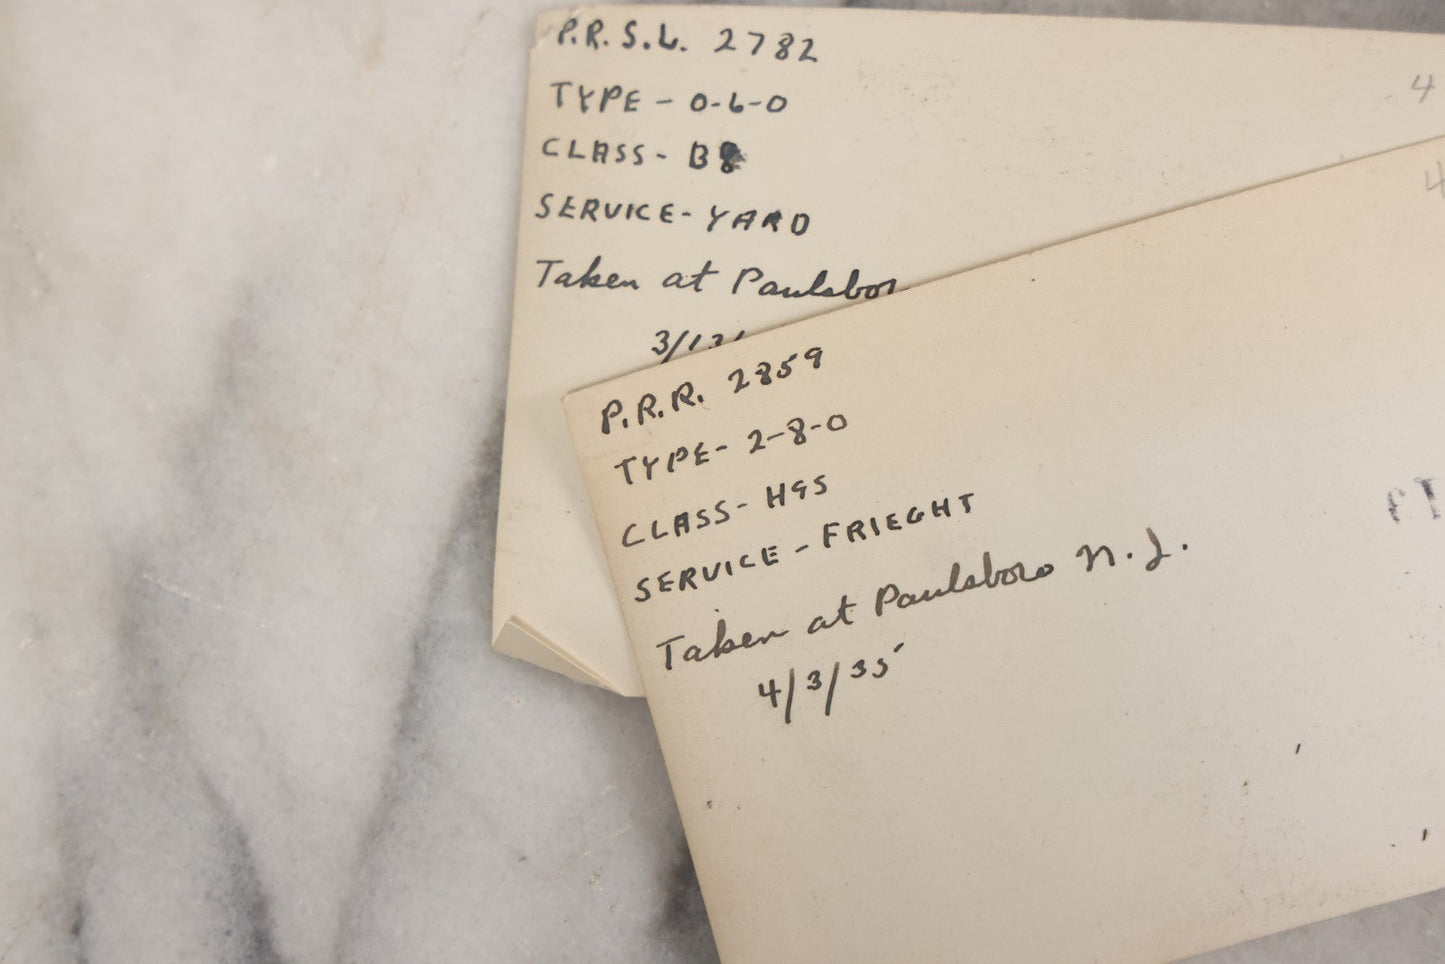 P.R.S.L. 2782
TYPE - 0-6-0
CLASS - B8
SERVICE - YARD
Taken at Paulsbor
3/13/
4
P.R.R. 2859
TYPE - 2-8-0
CLASS - H9S
SERVICE - FRIEGHT
Taken at Paulsboro N.J.
4/3/35
4